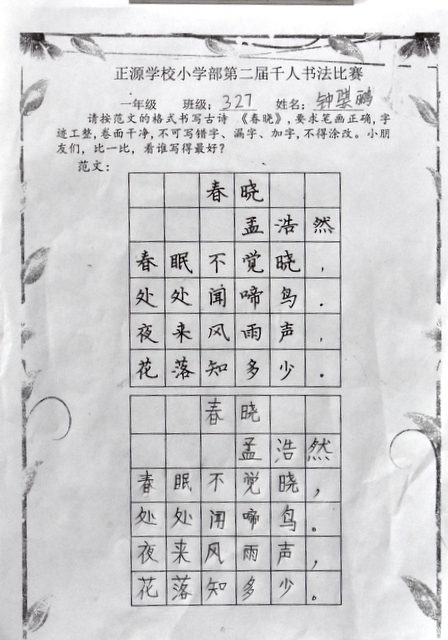 正源学校小学部第二届千人书法比赛
一年级 班级：327 姓名：钟骐鹏
请按范文的格式书写古诗《春晓》，要求笔画正确，字
迹工整，卷面干净，不可写错字、漏字、加字，不得涂改。小朋
友们，比一比，看谁写得最好？
范文：
春晓
孟浩然
春眠不觉晓，
处处闻啼鸟．
夜来风雨声，
花落知多少．
春晓
孟浩然
春眠不觉晓，
处处闻啼鸟。
夜来风雨声，
花落知多少。